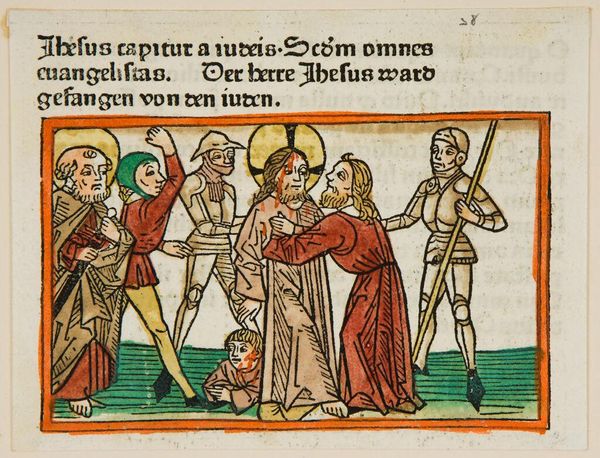 28
Ihesus capitur a iudeis. Scd̄m omnes
euangelistas. Der herre Ihesus ward
gefangen von den iuden.